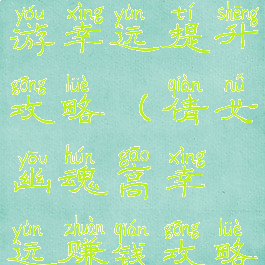 yóu xìng yùn tí shēng
游幸运提升
gōng lüè qiàn nǚ
攻略（倩女
yōu hún gāo xìng
幽魂高幸
yùn zhuàn qián gōng lüè
运赚钱攻略